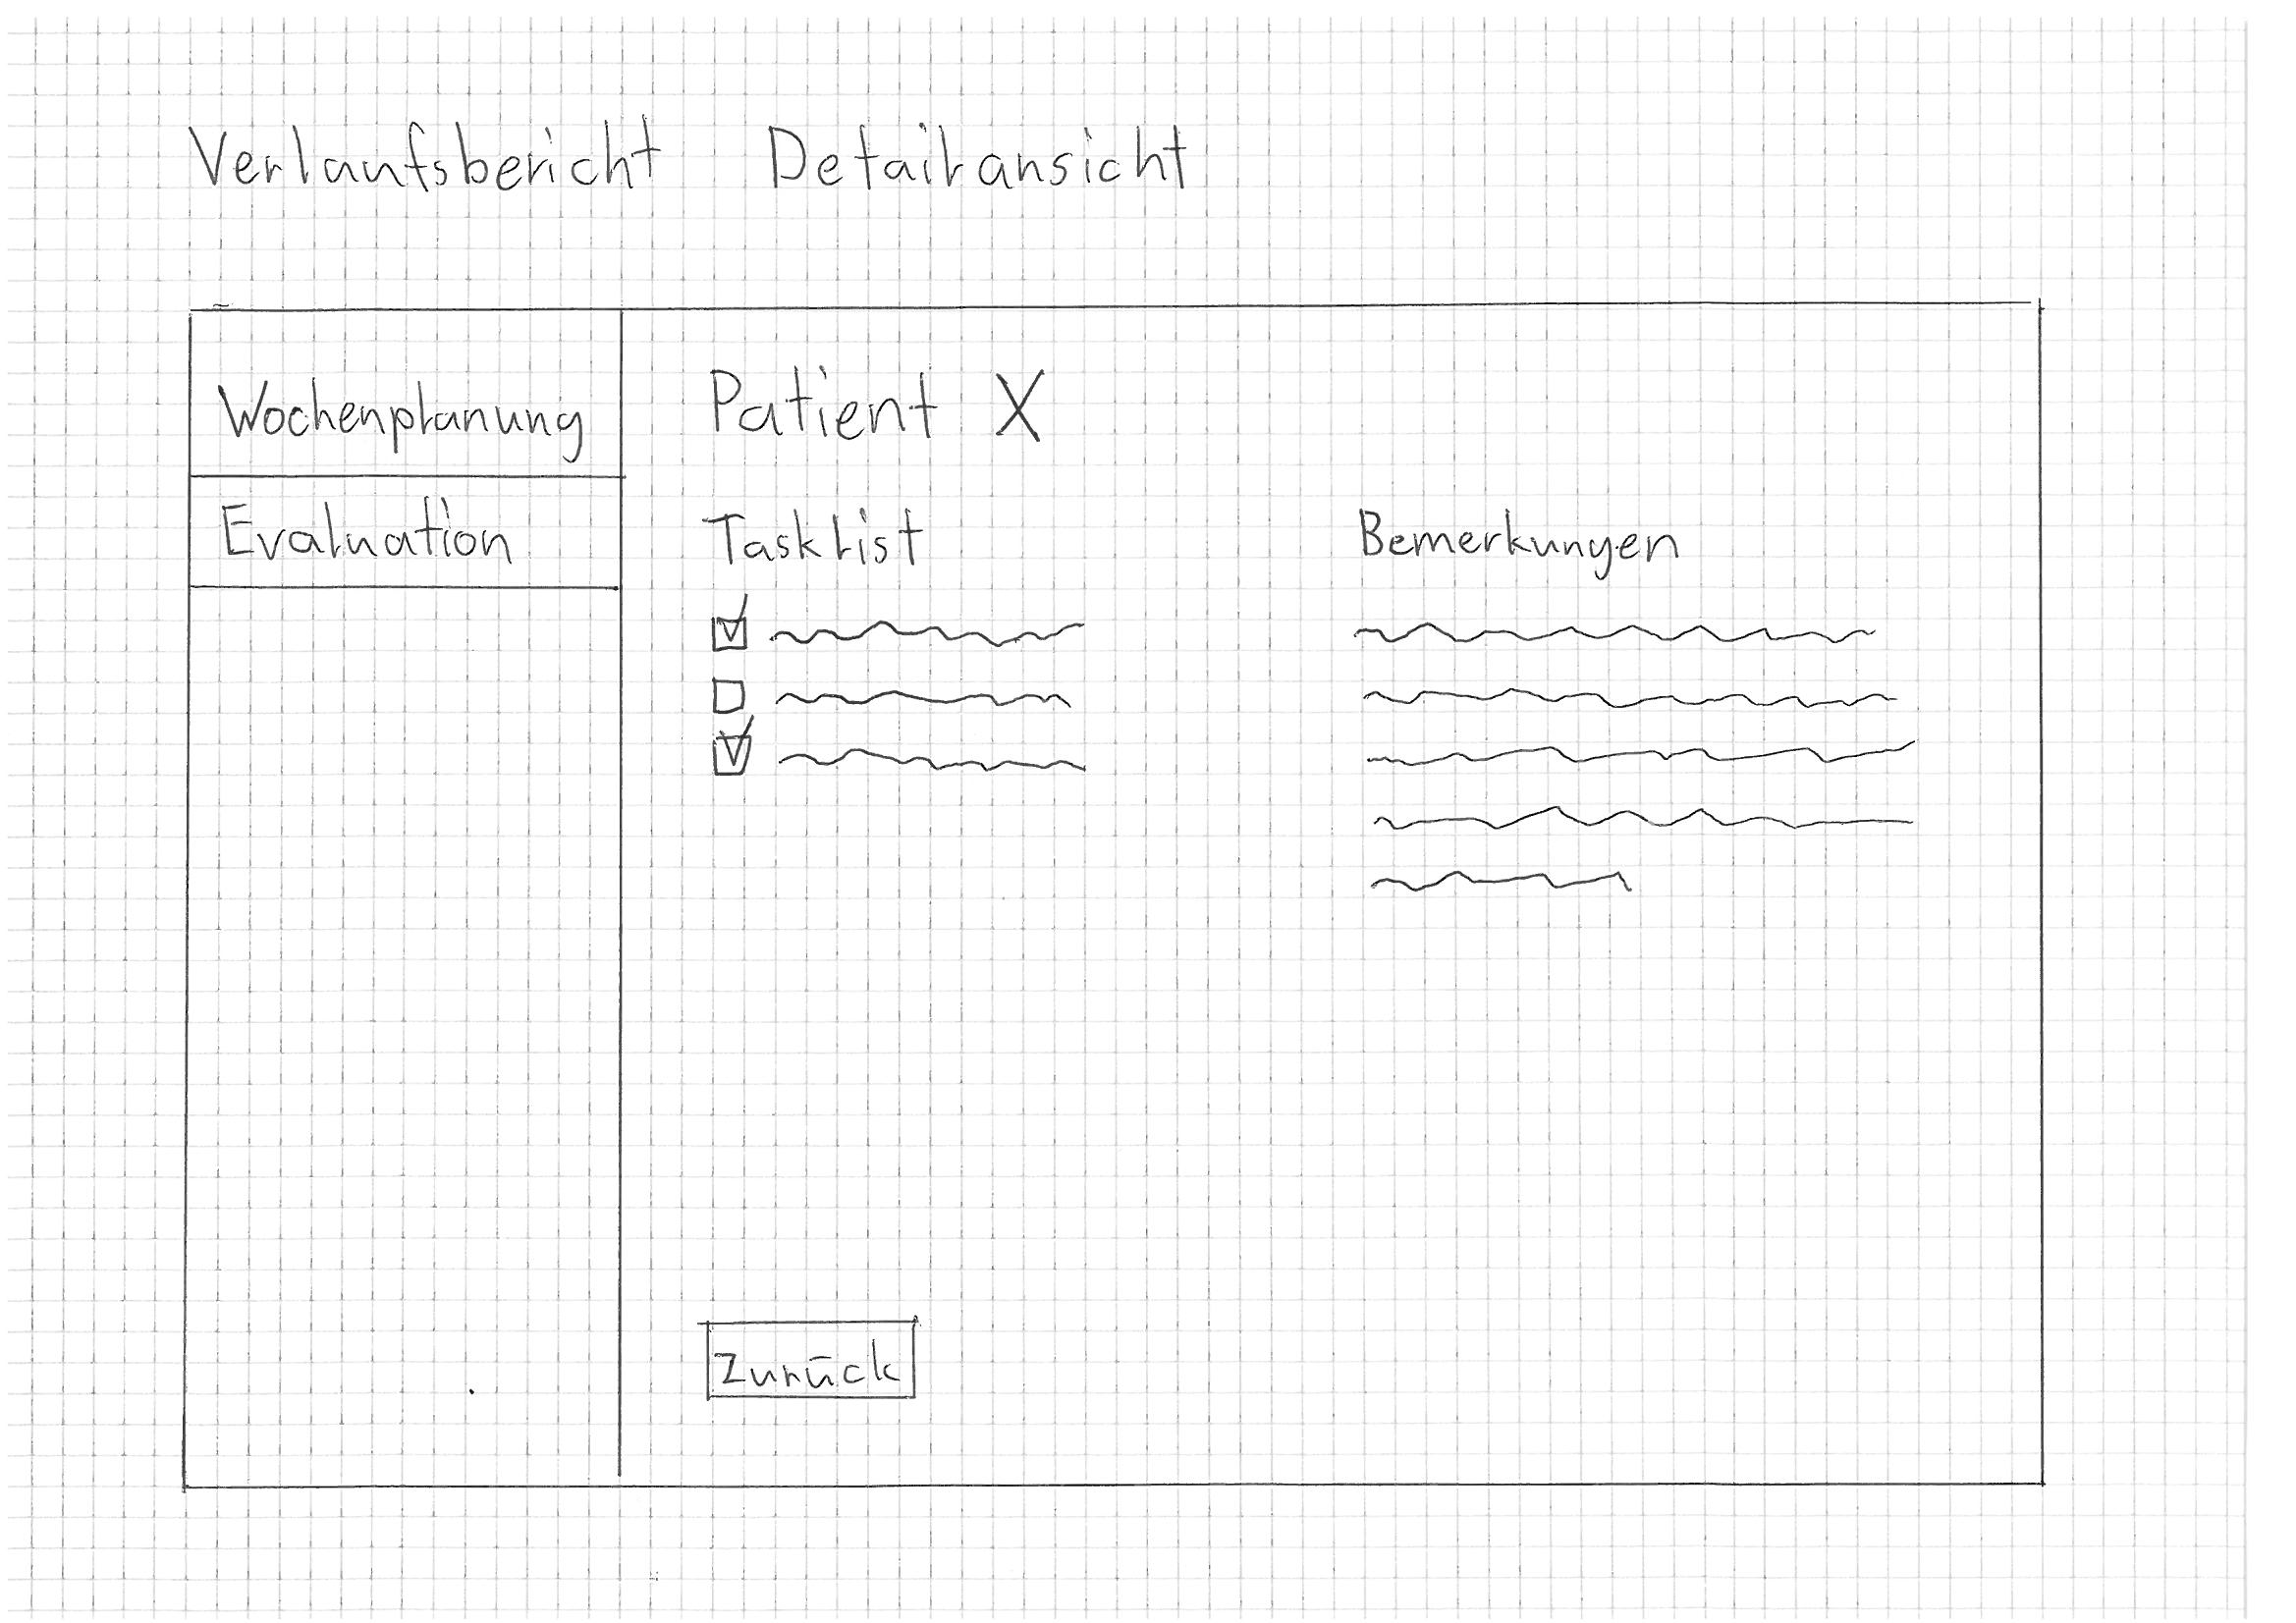 Verlaufsbericht Detailansicht
Wochenplanung
Evaluation
Patient X
Tasklist
Bemerkungen
Zurück